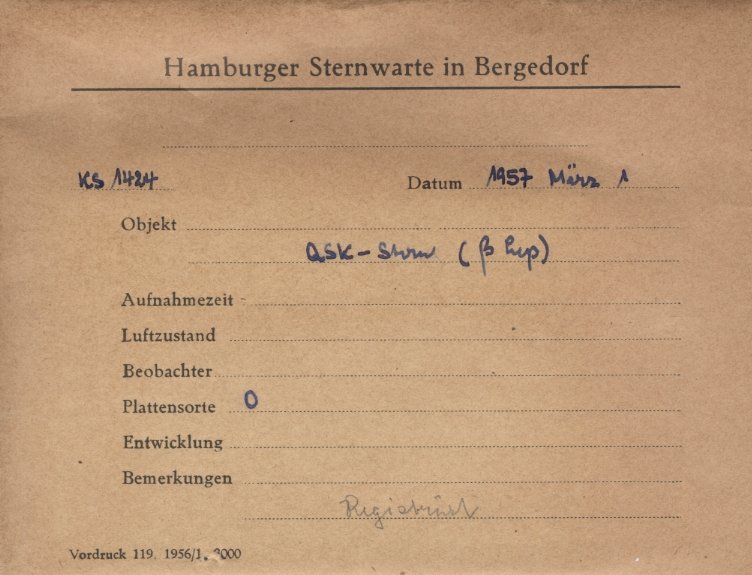 Hamburger Sternwarte in Bergedorf
KS 1424
Datum 1957 März 1
Objekt
QSK-Stern (β Lep)
Aufnahmezeit
Luftzustand
Beobachter
Plattensorte O
Entwicklung
Bemerkungen
Registriert
Vordruck 119. 1956/1. 3000